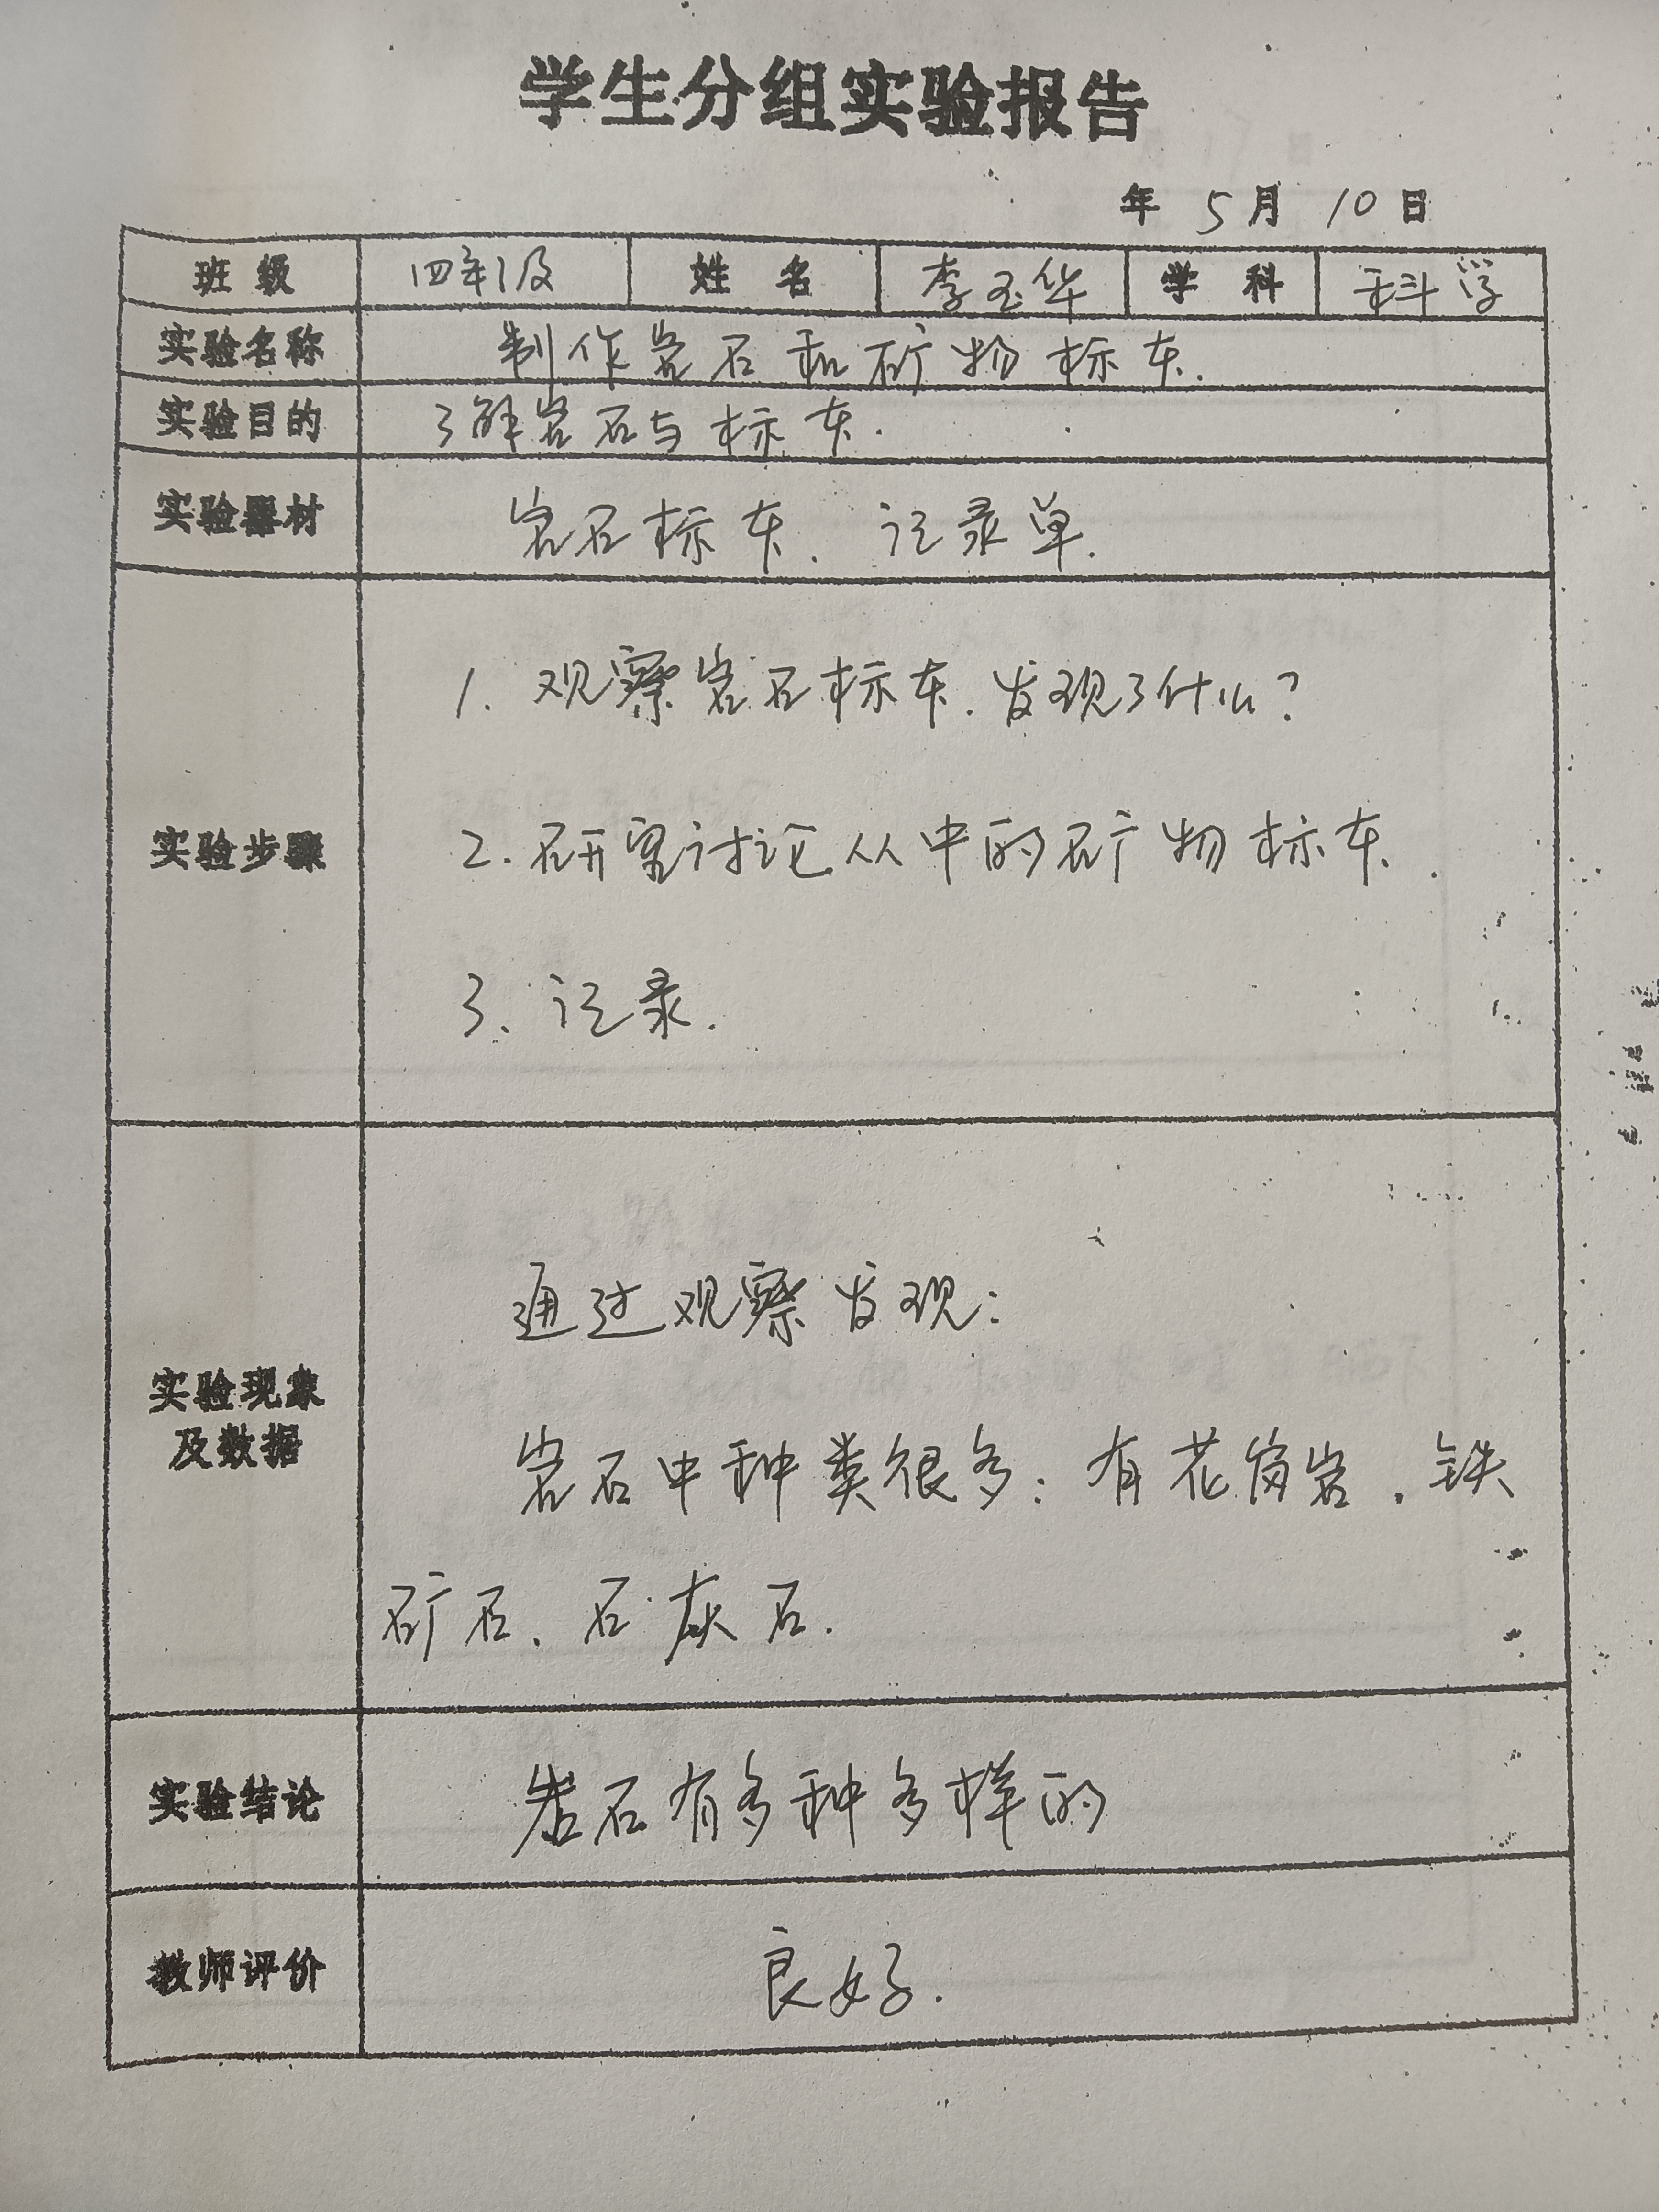 学生分组实验报告
年 5月 10日
班 级 四年级 姓 名 李玉华 学 科 科学
实验名称 制作岩石和矿物标本.
实验目的 了解岩石与标本.
实验器材 岩石标本. 记录单.
1. 观察岩石标本. 发现了什么?
实验步骤 2. 研究讨论从中的矿物标本.
3. 记录.
通过观察发现:
实验现象
及数据
岩石中种类很多: 有花岗岩. 铁
矿石. 石灰石.
实验结论 岩石有多种多样的
教师评价 良好.